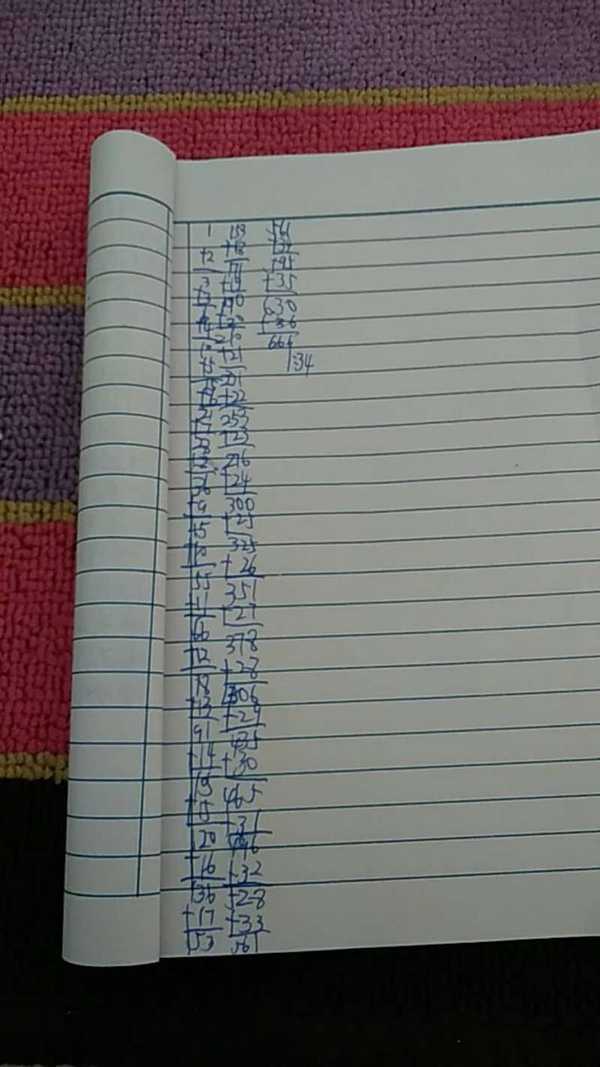 1
+2
3
+3
6
+4
10
+5
15
+6
21
+7
28
+8
36
+9
45
+10
55
+11
66
+12
78
+13
91
+14
105
+15
120
+16
136
+17
153
153
+18
171
+19
190
+20
210
+21
231
+22
253
+23
276
+24
300
+25
325
+26
351
+27
378
+28
406
+29
435
+30
465
+31
496
+32
528
+33
561
561
+34
595
+35
630
+36
666
1:34